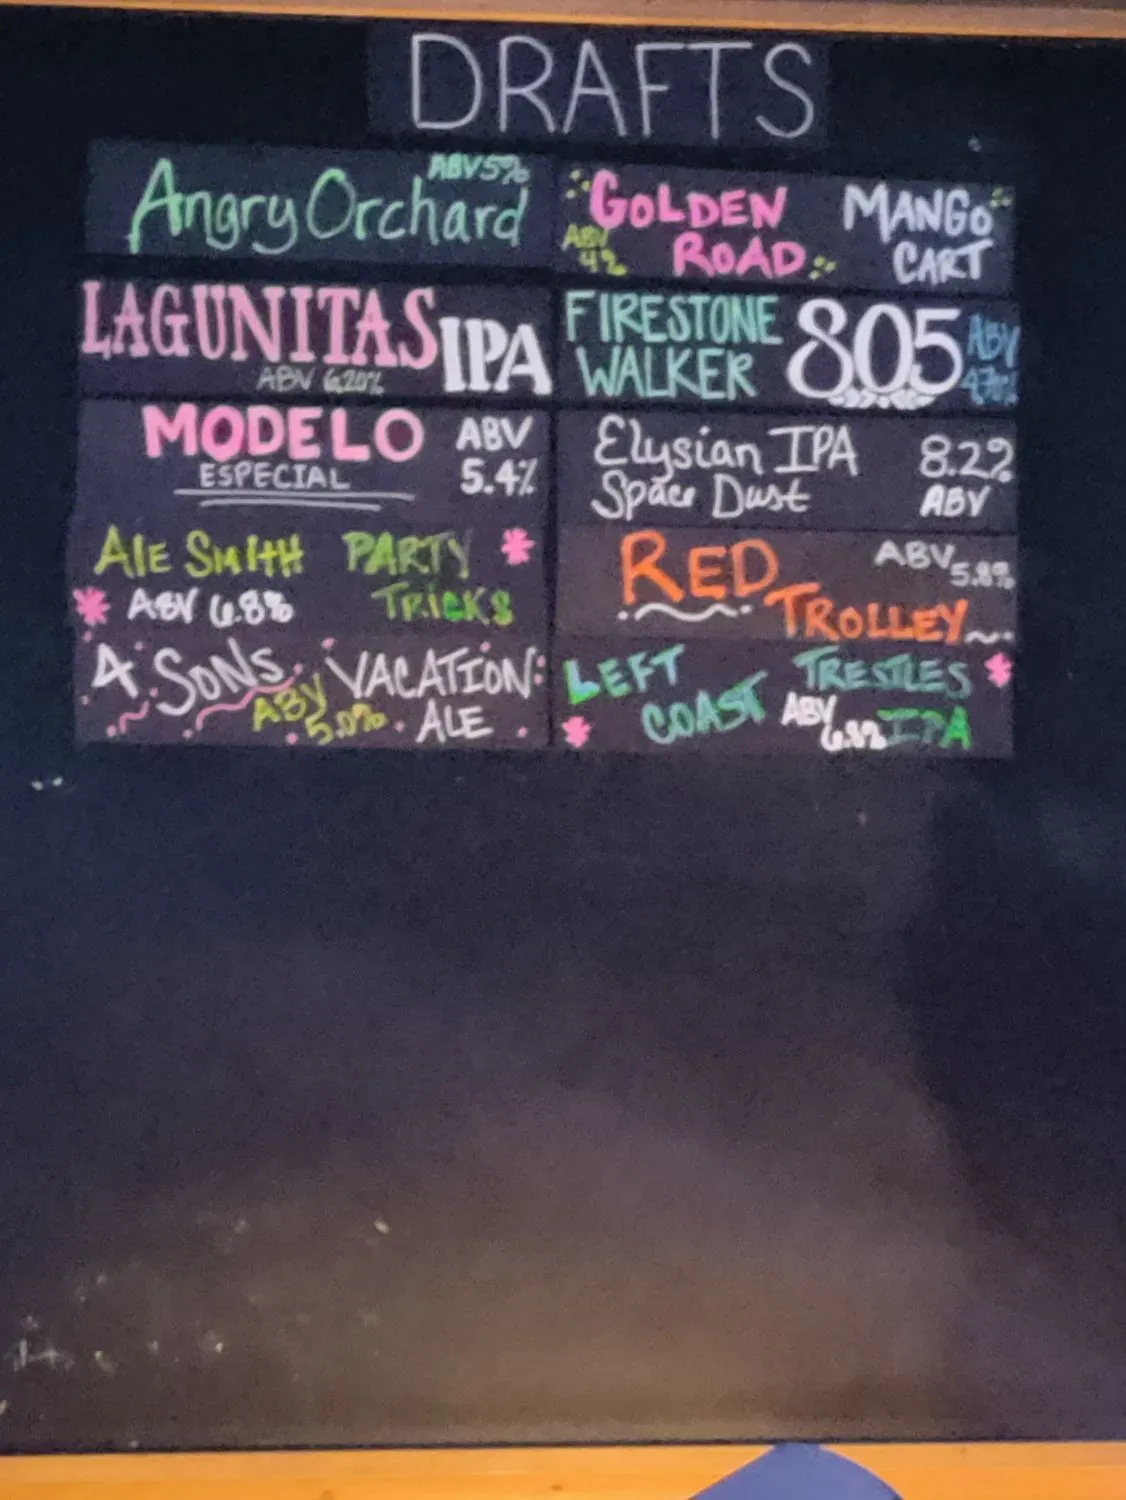 DRAFTS
ABV 5%
Angry Orchard
GOLDEN MANGO
ABV 4% ROAD CART
LAGUNITAS IPA
ABV 6.20%
FIRESTONE
WALKER 805 ABV
MODELO ABV
ESPECIAL 5.4%
Elysian IPA 8.2%
Space Dust ABV
ALE SMITH PARTY
ABV 6.8% TRICKS
RED ABV 5.8%
TROLLEY
4 SONS VACATION
ABV 5.0% ALE
LEFT TRESTLES
COAST ABV IPA